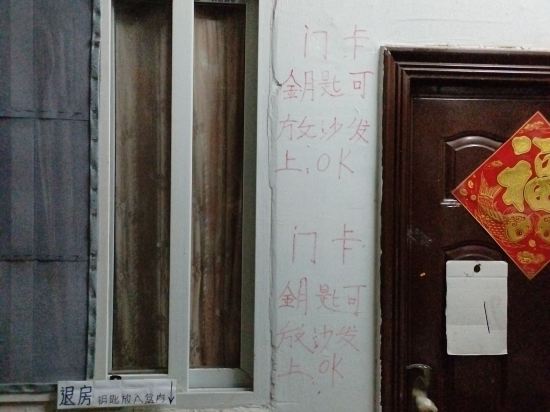 门卡
钥匙可
放沙发
上.OK
门卡
钥匙可
放沙发
上.OK
福
1
退房 钥匙放入盆内↓